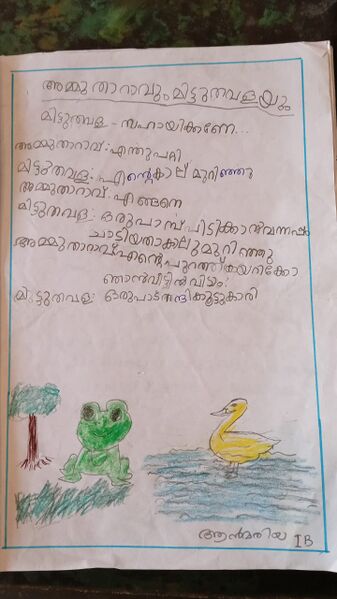 അമ്മുതാറാവും മിട്ടുതവളയും
മിട്ടുതവള - സഹായിക്കണേ...
അമ്മുതാറാവ്: എന്തുപറ്റി
മിട്ടുതവള: എൻ്റെകാല് മുറിഞ്ഞു
അമ്മുതാറാവ്: എങ്ങനെ
മിട്ടുതവള: ഒരുപാമ്പ് പിടിക്കാൻവന്നപ്പം
ചാടിയതാകാലുമുറിഞ്ഞു
അമ്മുതാറാവ്: എൻ്റെപുറത്ത്കയറിക്കോ
ഞാൻവീട്ടിൽവിടാം!
മിട്ടുതവള: ഒരുപാട്നന്ദികൂട്ടുകാരി
ആൻമരിയ IB